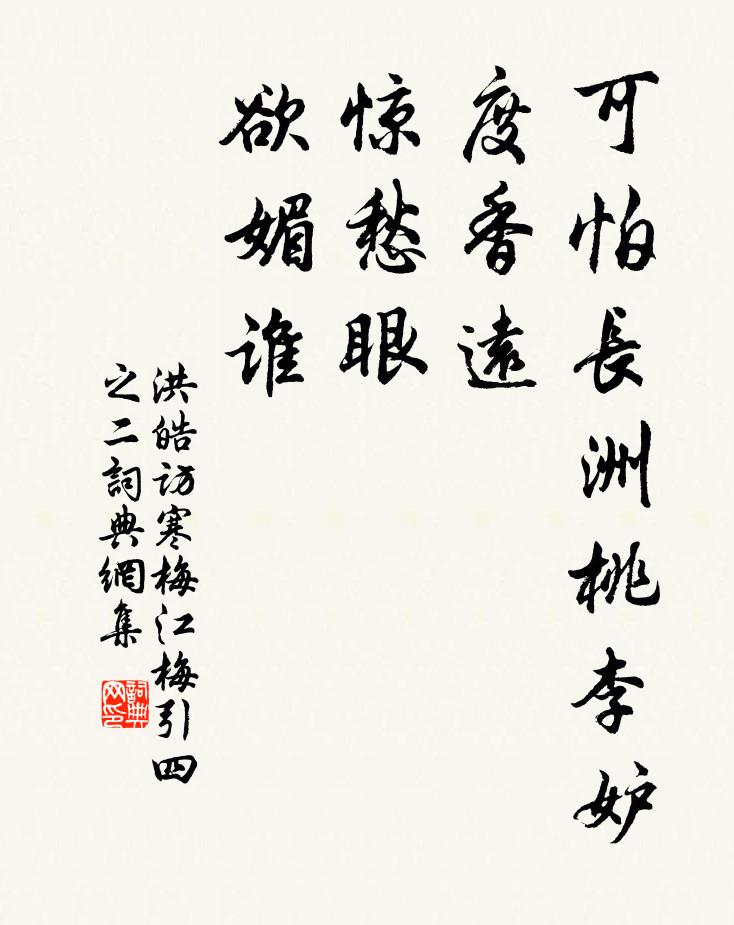 可怕長洲桃李妒
度香遠
惊愁眼
欲媚谁
洪皓访寒梅江梅引四
之二詞典網集
詞典网印